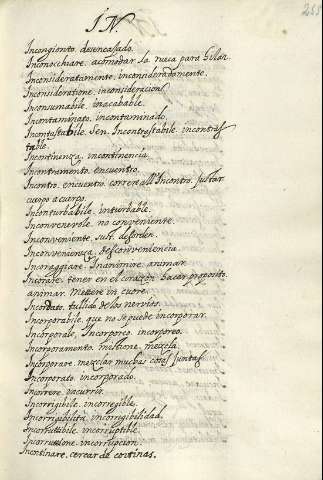 IN.
255
Incongionto. desencasado.
Inconocchiare. acomodar la rueca para hilar.
Inconsideratamente. inconsideradamente.
Inconsideratione. inconsideracion.
Inconsumabile. inacabable.
Incontaminato. incontaminado.
Incontestabile. Sen. Incontrastabile. incontras
table.
Incontinenza. incontinencia.
Incontramento. encuentro.
Incontro. encuentro. correre all'Incontro. justar
cuerpo a cuerpo.
Inconturbabile. inturbable.
Inconvenevole. no conveniente.
Inconveniente. sust. desorden.
Inconvenienza. desconveniencia.
Incoraggiare. Inanimire. animar.
Incorare. tener en el corazon. hacer proposito.
animar. Mettere in cuore.
Incordato. tullido de los nervios.
Incorporabile. que no se puede incorporar.
Incorporale. Incorporeo. incorporeo.
Incorporamento. mestione. mezcla.
Incorporare. mezclar muchas cosas juntas.
Incorporato. incorporado.
Incorrere. incurrir.
Incorrigibile. incorregible.
Incorrigibilità. incorrigibilidad.
Incorruttibile. incorruptible.
Incorruttione. incorrupcion.
Incortinare. cercar de cortinas.